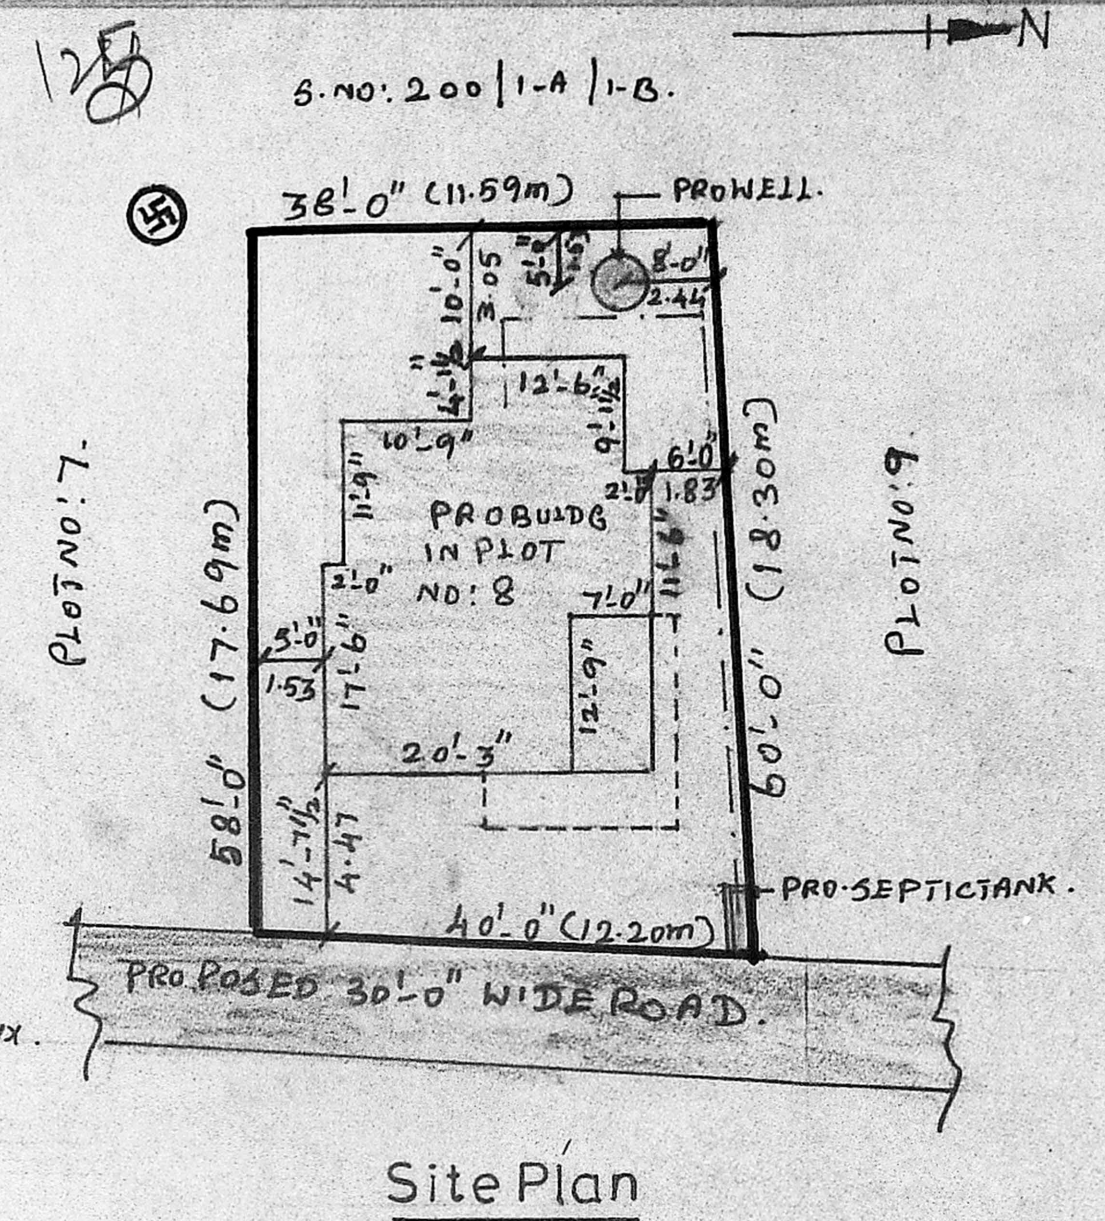 125
S.NO: 200/1-A/1-B.
N
38'-0" (11.59m)
PROWELL.
10'-0"
3.05
5'-0"
8'-0"
2.44
4'-1½"
12'-6"
9'-1½"
10'-9"
6'-0"
1.83
2'-0"
11'-9"
PROBUILDG
IN PLOT
NO: 8
11'-6"
2'-0"
7'-0"
5'-0"
1.53
17'-6"
12'-9"
20'-3"
14'-7½"
4.47
PLOT NO: 7.
58'-0" (17.69m)
60'-0" (18.30m)
PLOT NO: 9
PRO.SEPTICTANK.
40'-0" (12.20m)
PROPOSED 30'-0" WIDE ROAD.
Site Plan